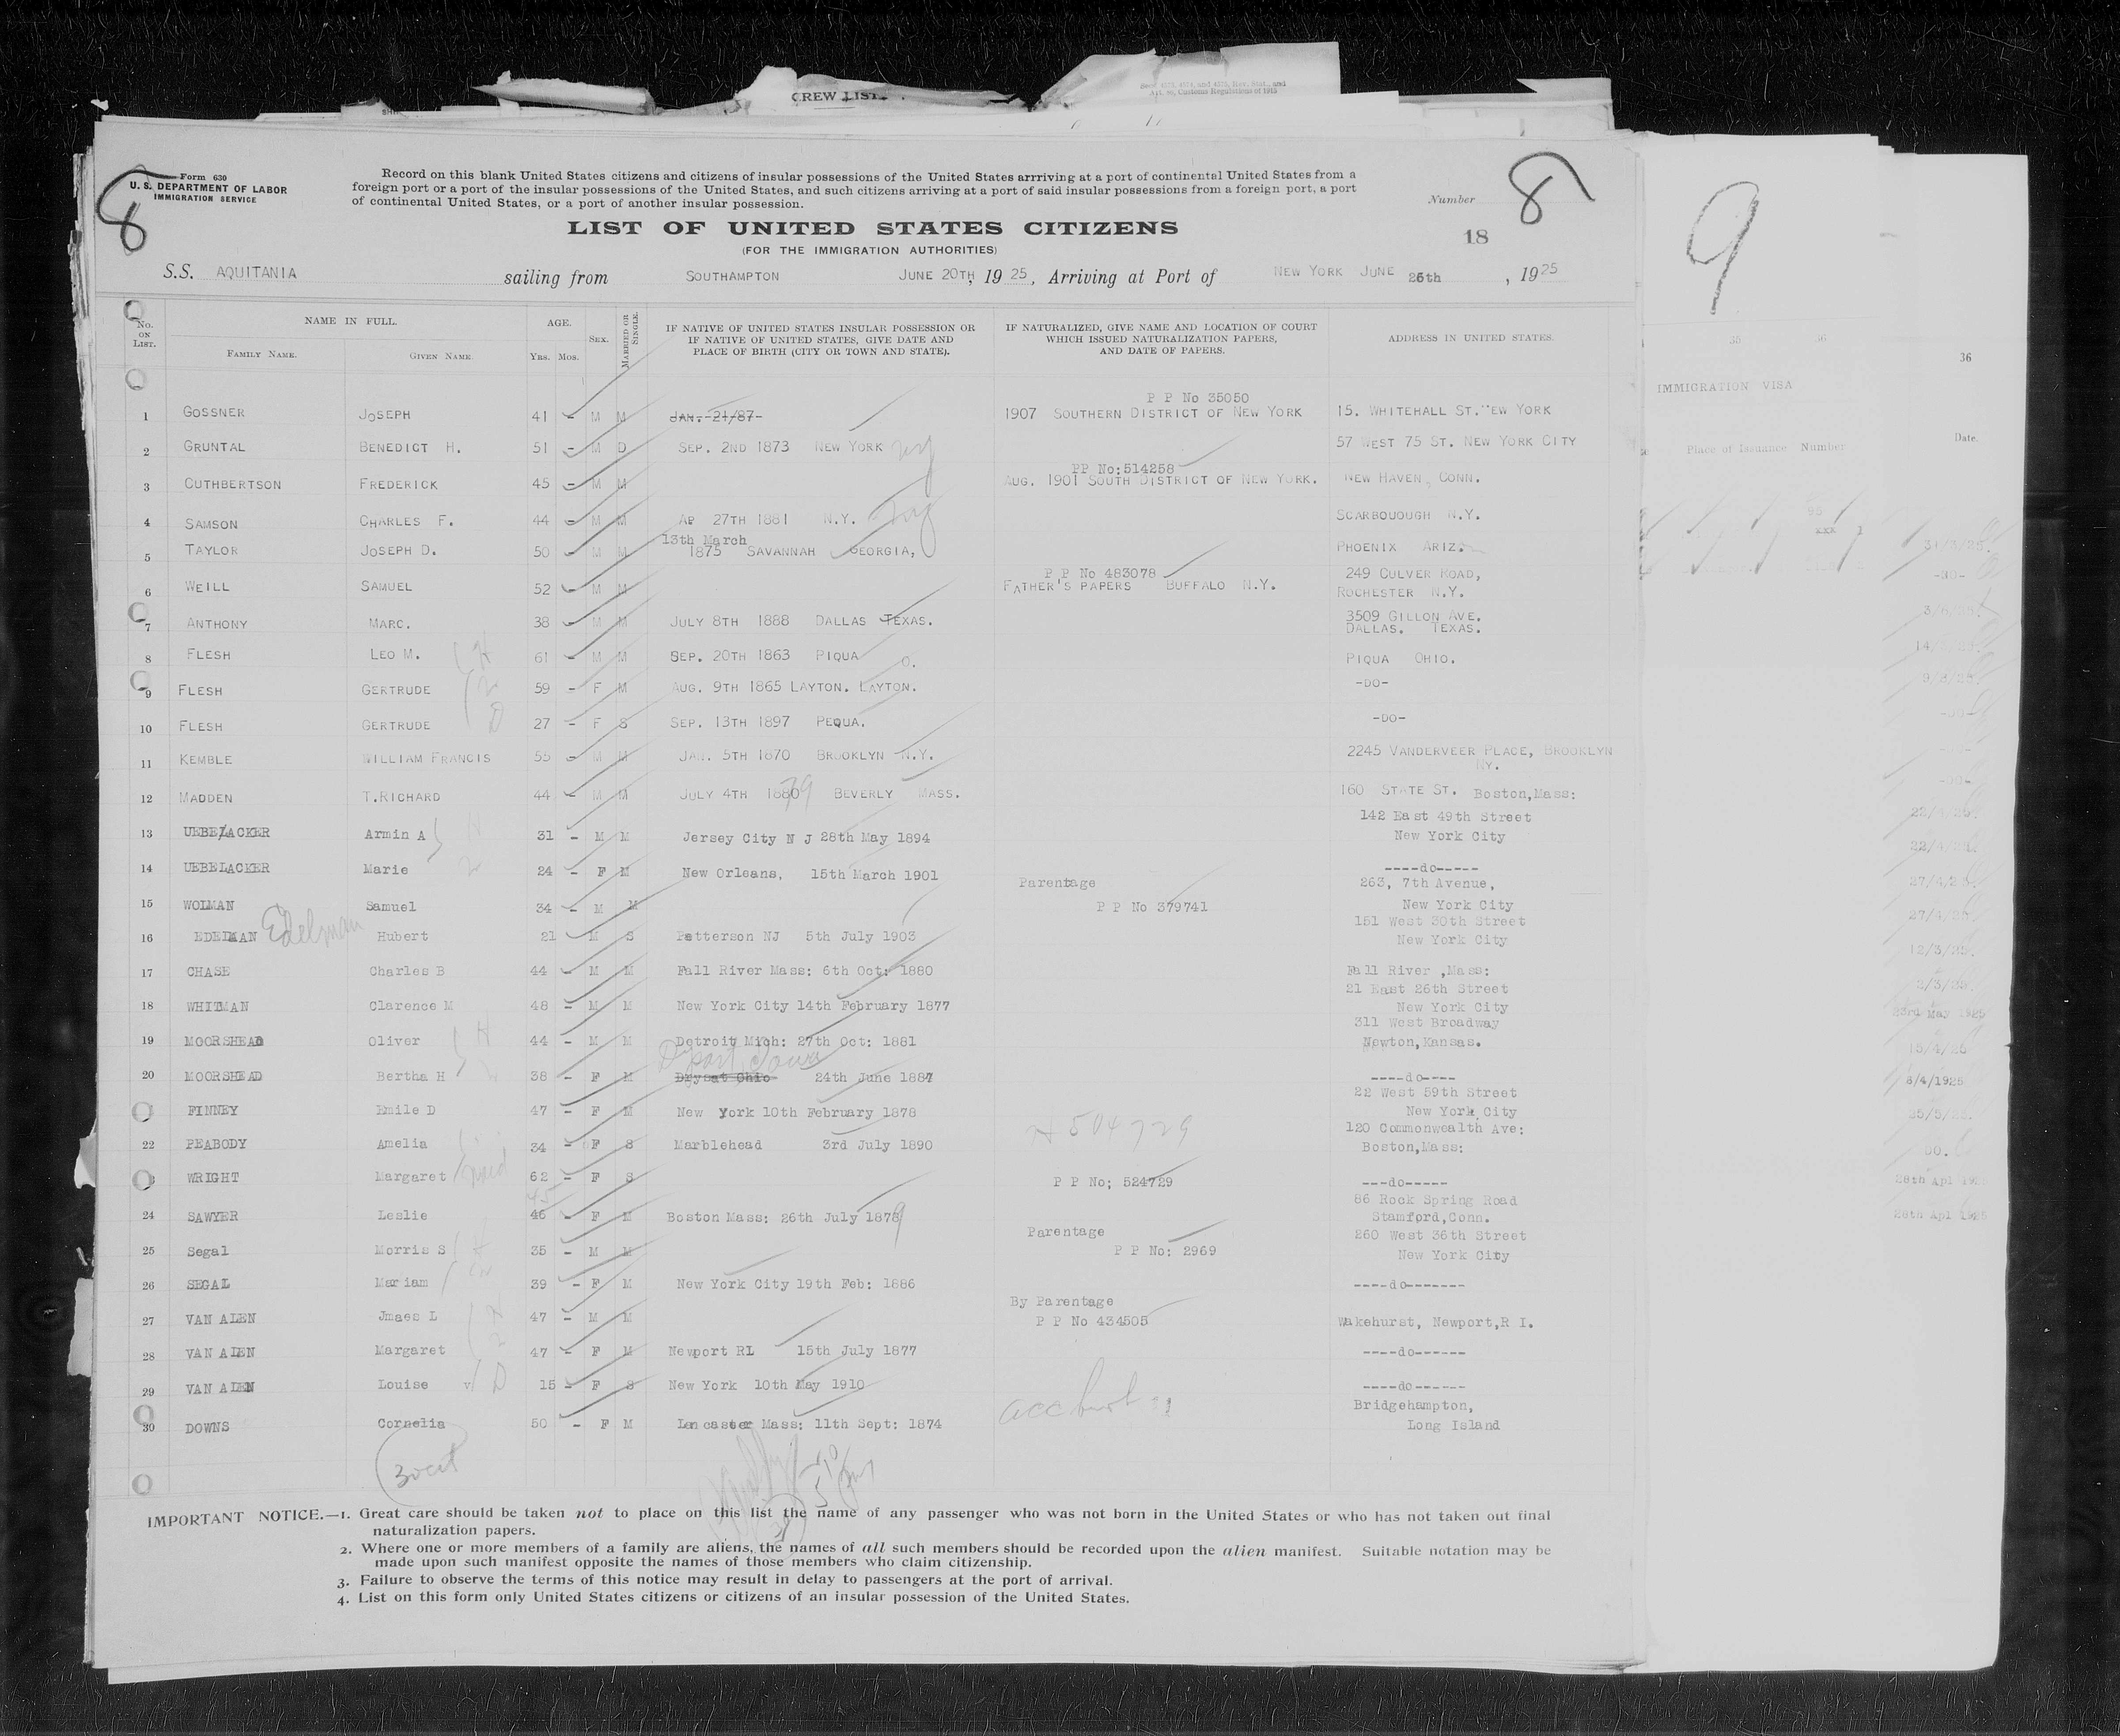 CREW LIST
Form 630
U. S. DEPARTMENT OF LABOR
IMMIGRATION SERVICE
8
Record on this blank United States citizens and citizens of insular possessions of the United States arrriving at a port of continental United States from a
foreign port or a port of the insular possessions of the United States, and such citizens arriving at a port of said insular possessions from a foreign port, a port
of continental United States, or a port of another insular possession.
Number
8
9
LIST OF UNITED STATES CITIZENS
18
(FOR THE IMMIGRATION AUTHORITIES)
S.S. AQUITANIA sailing from SOUTHAMPTON JUNE 20TH, 1925, Arriving at Port of NEW YORK JUNE 26th, 1925
No. ON LIST.
NAME IN FULL.
FAMILY NAME. GIVEN NAME.
AGE.
Yrs. Mos.
SEX.
MARRIED OR SINGLE.
IF NATIVE OF UNITED STATES INSULAR POSSESSION OR
IF NATIVE OF UNITED STATES, GIVE DATE AND
PLACE OF BIRTH (CITY OR TOWN AND STATE).
IF NATURALIZED, GIVE NAME AND LOCATION OF COURT
WHICH ISSUED NATURALIZATION PAPERS,
AND DATE OF PAPERS.
ADDRESS IN UNITED STATES.
35 36
36
IMMIGRATION VISA
Place of Issuance Number
Date.
P P No 35050
1 GOSSNER JOSEPH 41 - M M JAN. 21/87 1907 SOUTHERN DISTRICT OF NEW YORK 15. WHITEHALL ST. EW YORK
2 GRUNTAL BENEDICT H. 51 - M D SEP. 2ND 1873 NEW YORK 57 WEST 75 ST. NEW YORK CITY
PP No:514258
3 CUTHBERTSON FREDERICK 45 - M M AUG. 1901 SOUTH DISTRICT OF NEW YORK. NEW HAVEN, CONN.
4 SAMSON CHARLES F. 44 - M M AP 27TH 1881 N.Y. SCARBOUOUGH N.Y.
13th March
5 TAYLOR JOSEPH D. 50 - M M 1875 SAVANNAH GEORGIA, PHOENIX ARIZ.
P P No 483078 249 CULVER ROAD,
6 WEILL SAMUEL 52 - M M FATHER'S PAPERS BUFFALO N.Y. ROCHESTER N.Y.
3509 GILLON AVE.
7 ANTHONY MARC. 38 - M M JULY 8TH 1888 DALLAS TEXAS. DALLAS. TEXAS.
8 FLESH LEO M. 61 - M M SEP. 20TH 1863 PIQUA O. PIQUA OHIO.
9 FLESH GERTRUDE 59 - F M AUG. 9TH 1865 LAYTON. LAYTON. -DO-
10 FLESH GERTRUDE 27 - F S SEP. 13TH 1897 PEQUA. -DO-
11 KEMBLE WILLIAM FRANCIS 55 - M M JAN. 5TH 1870 BROOKLYN N.Y. 2245 VANDERVEER PLACE, BROOKLYN
NY.
12 MADDEN T.RICHARD 44 - M M JULY 4TH 1880 79 BEVERLY MASS. 160 STATE ST. Boston,Mass:
142 East 49th Street
13 UEBELACKER Armin A 31 - M M Jersey City N J 28th May 1894 New York City
14 UEBELACKER Marie 24 - F M New Orleans, 15th March 1901 ----do-----
Parentage 263, 7th Avenue,
15 WOLMAN Samuel 34 - M M P P No 379741 New York City
151 West 30th Street
16 EDELMAN Edelman Hubert 21 M S Patterson NJ 5th July 1903 New York City
17 CHASE Charles B 44 - M M Fall River Mass: 6th Oct: 1880 Fall River ,Mass:
21 East 26th Street
18 WHITMAN Clarence M 48 - M M New York City 14th February 1877 New York City
311 West Broadway
19 MOORSHEAD Oliver 44 - M M Detroit Mich: 27th Oct: 1881 Newton,Kansas.
20 MOORSHEAD Bertha H 38 - F M Drysat Ohio 24th June 1887 ----do----
22 West 59th Street
FINNEY Emile D 47 - F M New York 10th February 1878 New York City
120 Commonwealth Ave:
22 PEABODY Amelia 34 - F S Marblehead 3rd July 1890 # 504729 Boston,Mass:
WRIGHT Margaret maid 62 - F S P P No; 524729 ---do-----
45 86 Rock Spring Road
24 SAWYER Leslie 46 - F M Boston Mass: 26th July 1878 9 Stamford,Conn.
Parentage 260 West 36th Street
25 Segal Morris S 35 - M M P P No: 2969 New York City
26 SEGAL Mariam 39 - F M New York City 19th Feb: 1886 ----do-------
By Parentage
27 VAN ALEN Jmaes L 47 - M M P P No 434505 Wakehurst, Newport,R I.
28 VAN ALEN Margaret 47 - F M Newport RI. 15th July 1877 ----do------
29 VAN ALEN Louise 15 - F S New York 10th May 1910 ----do------
Bridgehampton,
30 DOWNS Cornelia 50 - F M Lancaster Mass; 11th Sept: 1874 Long Island
30 cit
31/3/25.
-do-
23rd May 1925
8/4/1925
28th Apl 1925
28th Apl 1925
IMPORTANT NOTICE.—1. Great care should be taken not to place on this list the name of any passenger who was not born in the United States or who has not taken out final
naturalization papers.
2. Where one or more members of a family are aliens, the names of all such members should be recorded upon the alien manifest. Suitable notation may be
made upon such manifest opposite the names of those members who claim citizenship.
3. Failure to observe the terms of this notice may result in delay to passengers at the port of arrival.
4. List on this form only United States citizens or citizens of an insular possession of the United States.